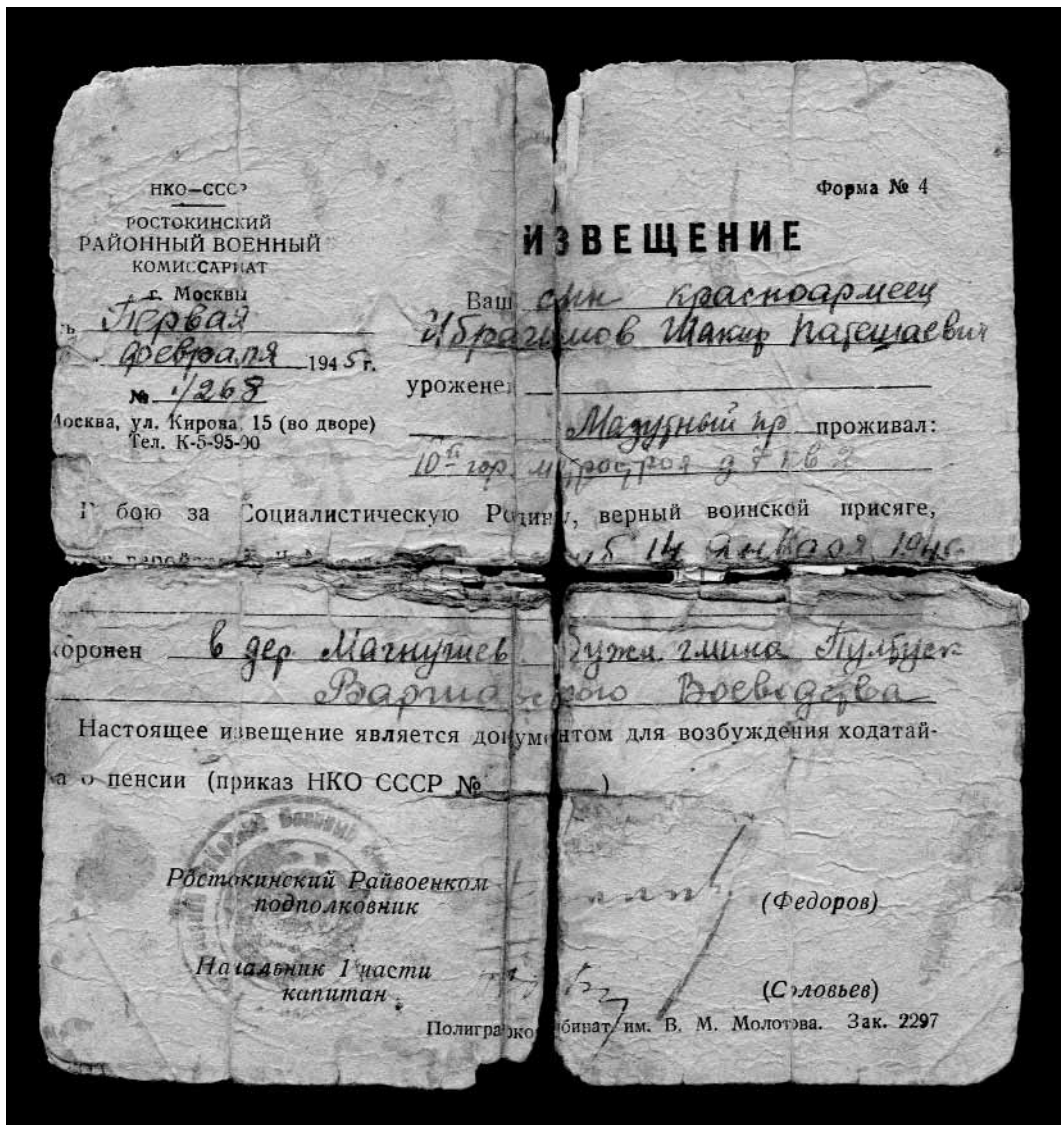 НКО—СССР
Форма № 4
РОСТОКИНСКИЙ
РАЙОННЫЙ ВОЕННЫЙ
КОМИССАРИАТ
г. Москвы
ИЗВЕЩЕНИЕ
Первая
февраля 1945 г.
№ 1/268
Москва, ул. Кирова, 15 (во дворе)
Тел. К-5-95-90
Ваш сын красноармеец
Ибрагимов Шакир Патешаевич
уроженец
Мазутный пр проживал:
10й гор. метростроя д 7 кв 2
бою за Социалистическую Родину, верный воинской присяге,
14 января 1945
хоронен в дер Магнушев гмина Пултуск
Варшавского Воеводства
Настоящее извещение является документом для возбуждения ходатай-
ва о пенсии (приказ НКО СССР № )
Ростокинский Райвоенком
подполковник (Федоров)
Начальник 1 части
капитан (Соловьев)
Полиграфкомбинат им. В. М. Молотова. Зак. 2297